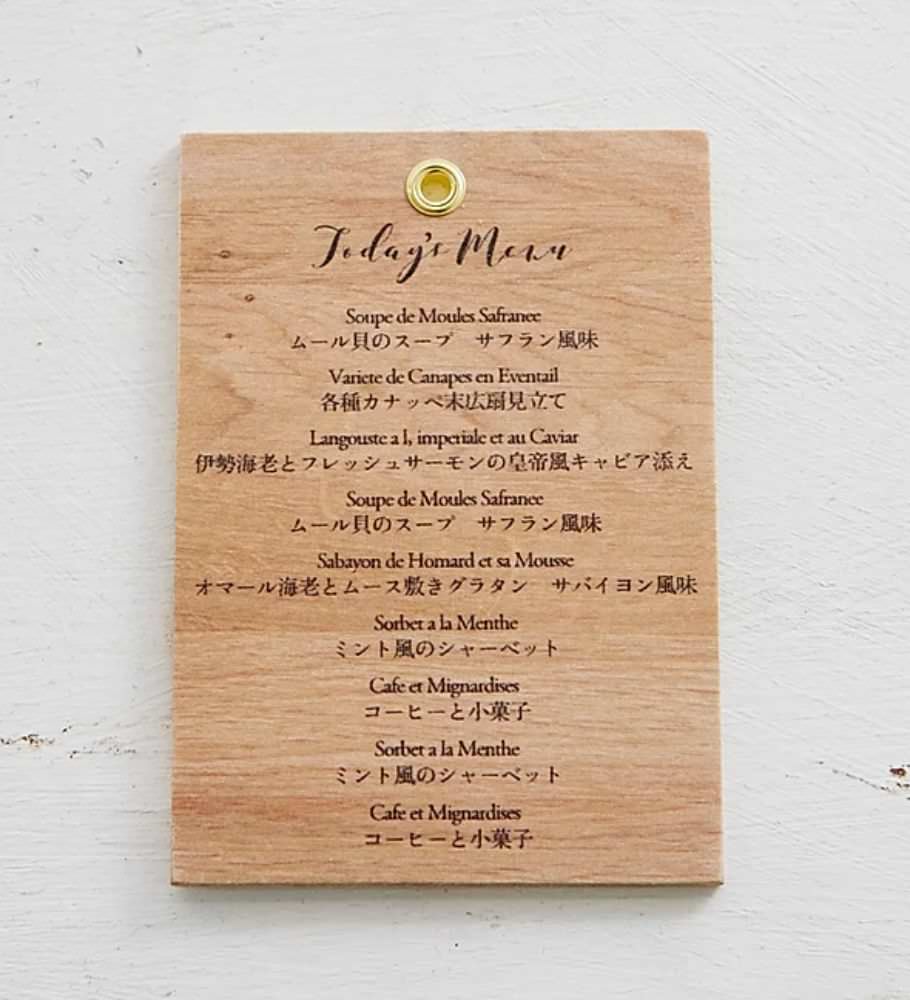 Today's Menu
Soupe de Moules Safranee
ムール貝のスープ　サフラン風味
Variete de Canapes en Eventail
各種カナッペ末広扇見立て
Langouste a l, imperiale et au Caviar
伊勢海老とフレッシュサーモンの皇帝風キャビア添え
Soupe de Moules Safranee
ムール貝のスープ　サフラン風味
Sabayon de Homard et sa Mousse
オマール海老とムース敷きグラタン　サバイヨン風味
Sorbet a la Menthe
ミント風のシャーベット
Cafe et Mignardises
コーヒーと小菓子
Sorbet a la Menthe
ミント風のシャーベット
Cafe et Mignardises
コーヒーと小菓子